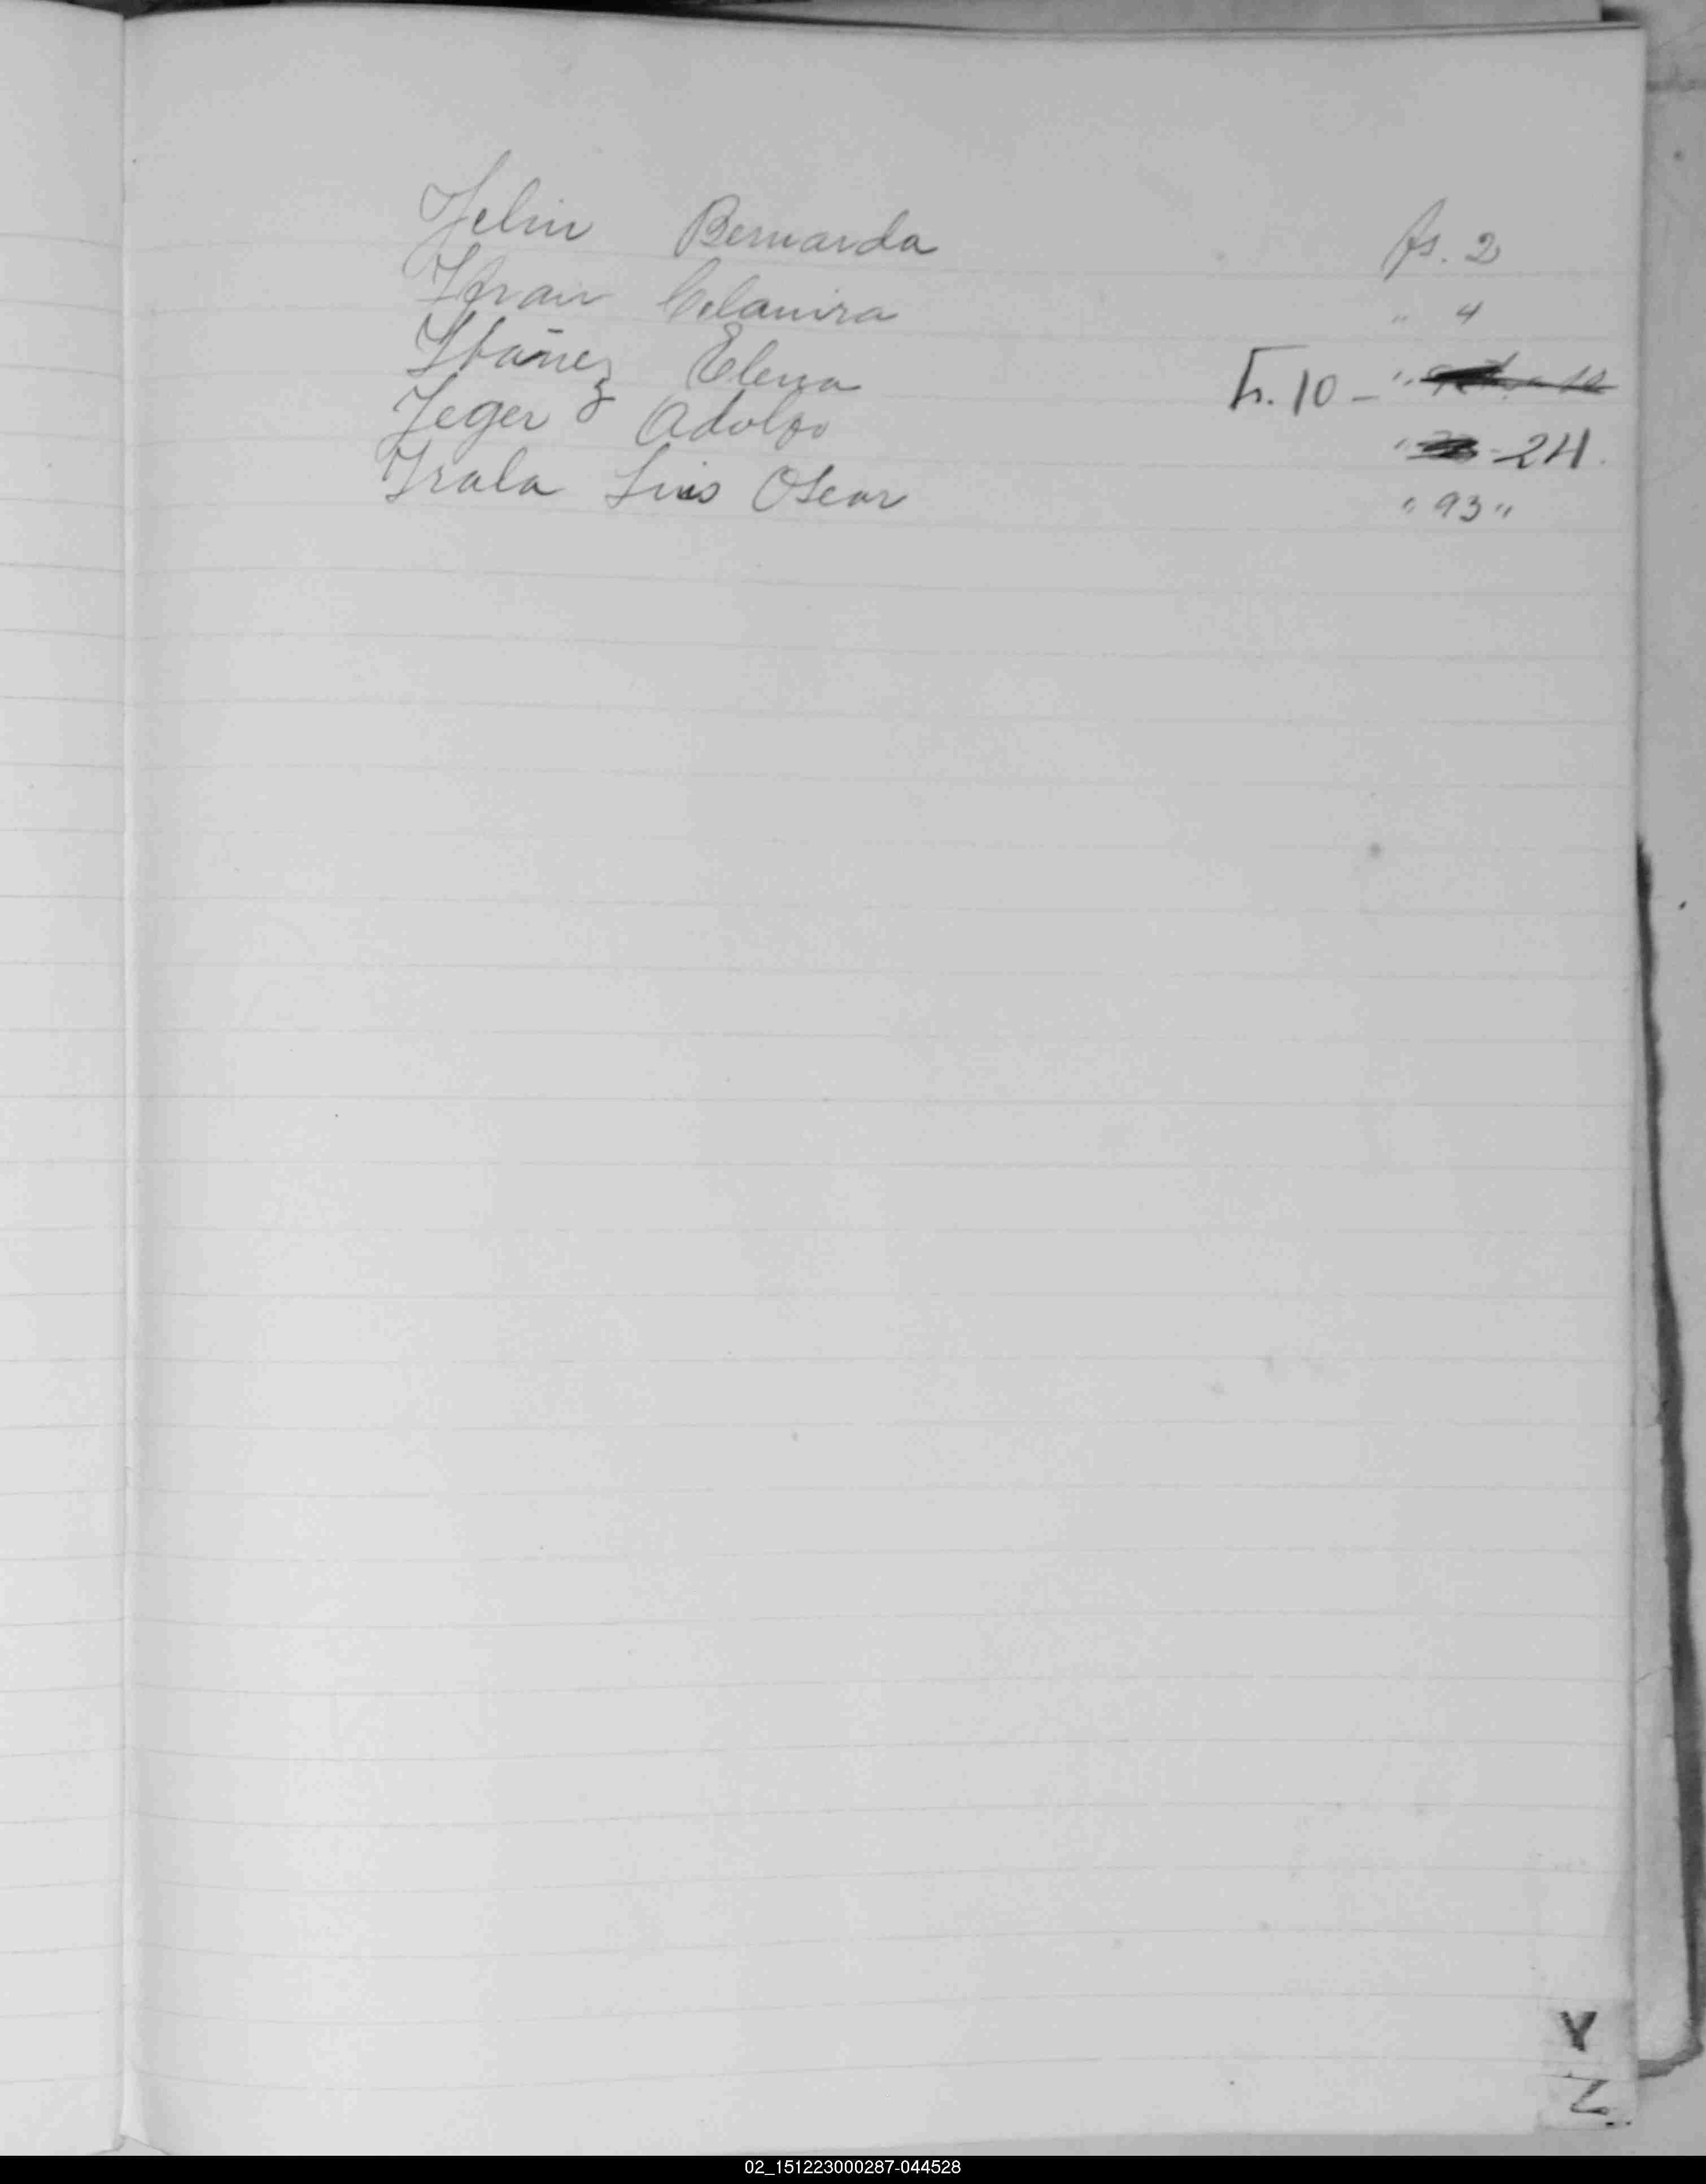 Yelin Bernarda fs. 2
Celanira " 4
Ybáñez Elena Fs. 10 -
Yeger Adolfo " 24.
Yrala Luis Oscar " 93 "
Y
Z
02_151223000287-044528